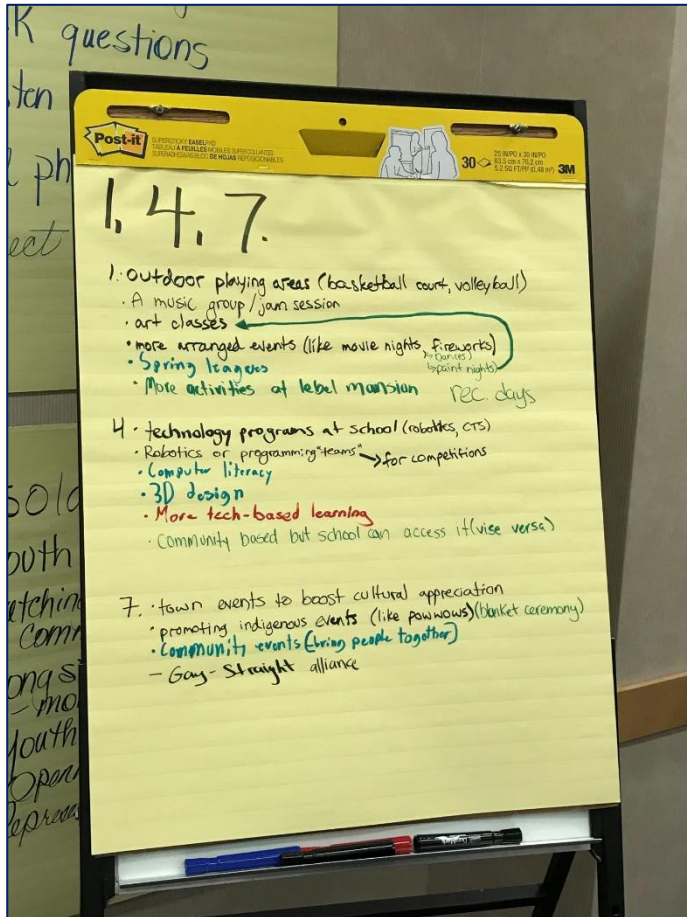 K questions
ten
ph
ect
Post-it
SUPERSTICKY EASEL PAD
TABLEAU À FEUILLES MOBILES SUPERCOLLANTES
30
25 IN/PO x 30 IN/PO
63.5 cm x 76.2 cm
5.2 SQ FT/PI² (0,48 m²)
3M
1, 4, 7.
1. · outdoor playing areas (basketball court, volleyball)
· A music group/jam session
· art classes
· more arranged events (like movie nights, fireworks)
↳ Dances)
↳paint nights)
· Spring leagues
· More activities at lebel mansion
rec. days
4 · technology programs at school (robotics, CTS)
· Robotics or programming "teams" → for competitions
· Computer literacy
· 3D design
· More tech-based learning
· Community based but school can access it (vise versa)
7. · town events to boost cultural appreciation
· promoting indigenous events (like powwows) (blanket ceremony)
· Community events (bring people together)
- Gay-Straight alliance
outh
etching
comm
ong s
- mo
Youth